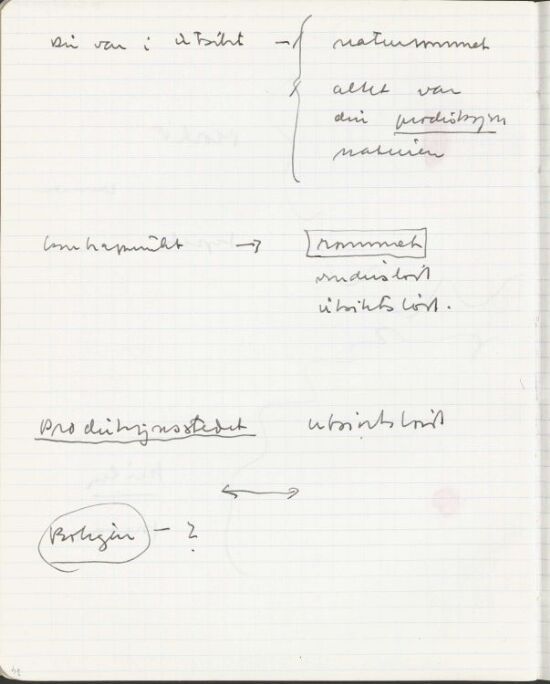 Du var i utsikt → { naturrommet
alltet var
din produksjon
naturen
kontrapunkt → rommet
vinduslöst
utsiktslöst.
Produksjonsstedet utsiktslöst
↔
Boligen – ?